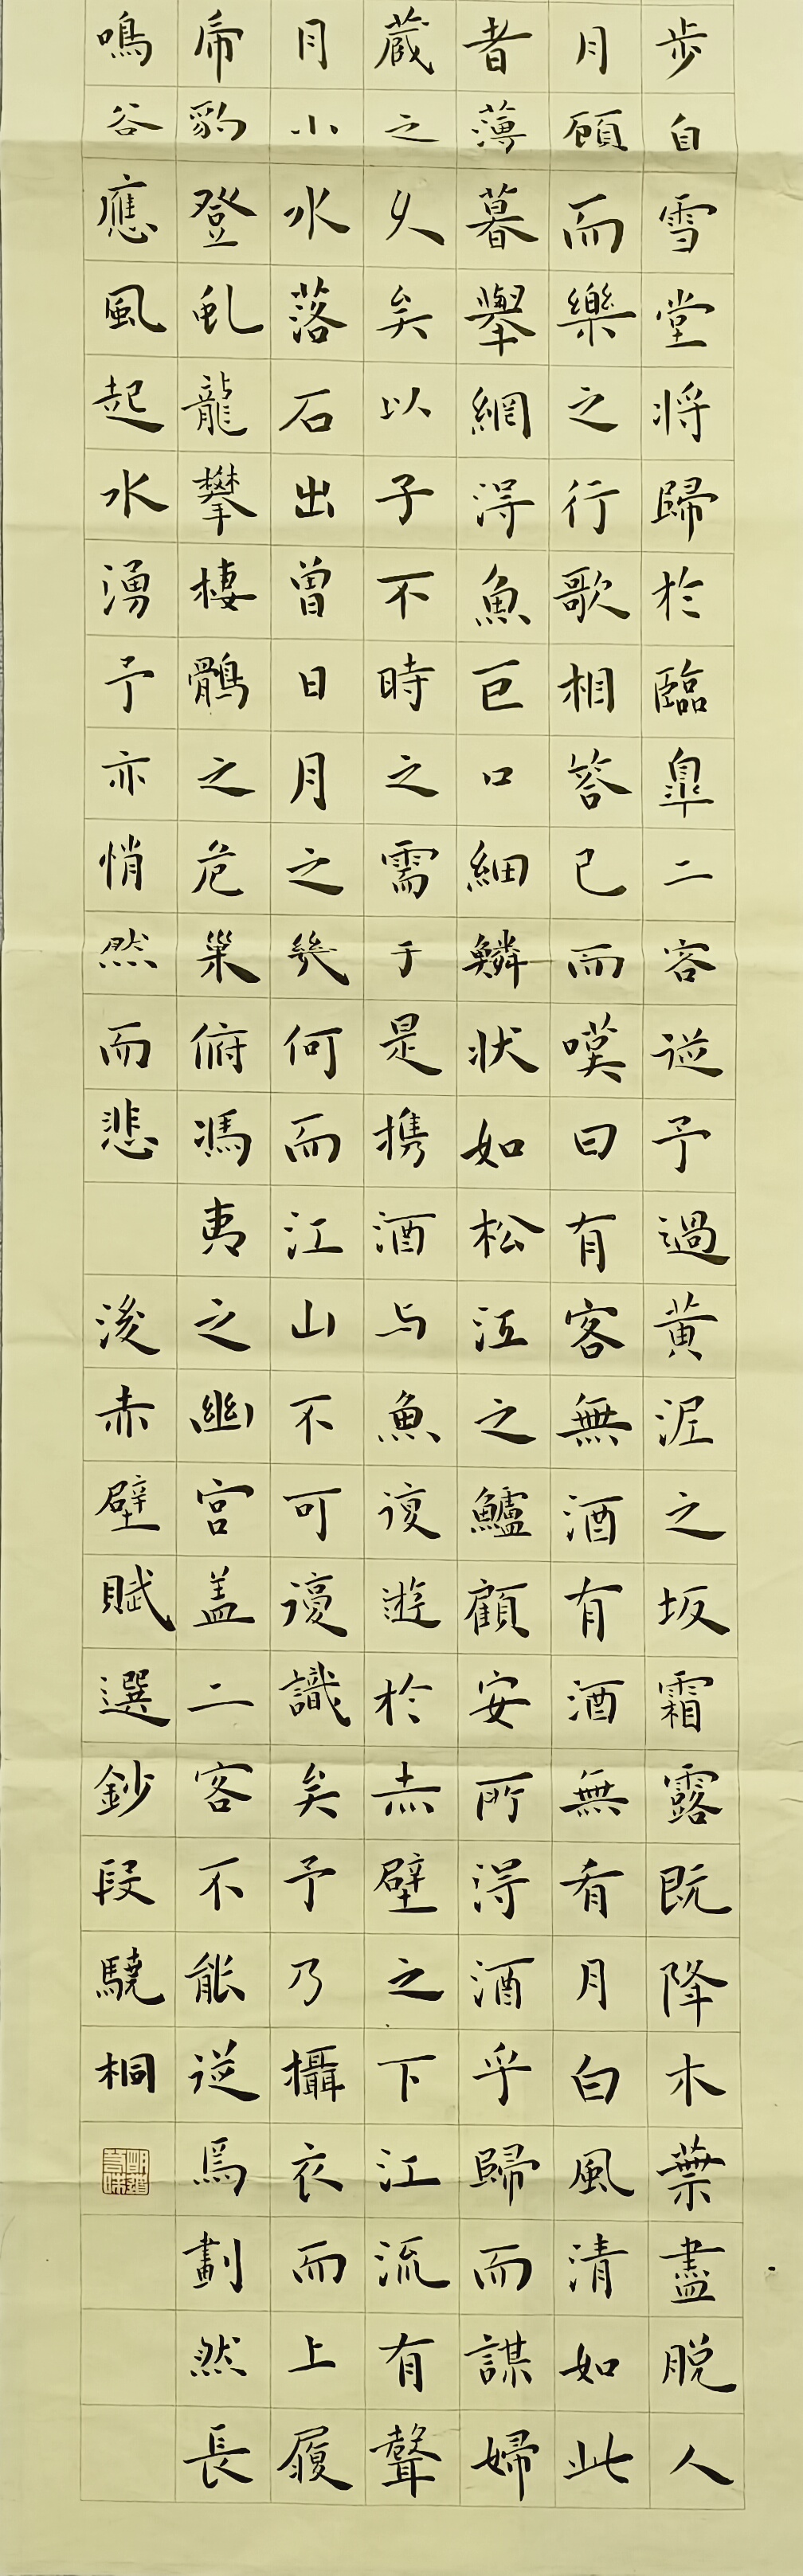 步自雪堂将歸於臨皐二客從予過黄泥之坂霜露既降木葉盡脱人
月顧而樂之行歌相答已而嘆曰有客無酒有酒無肴月白風清如此
者薄暮舉網得魚巨口細鱗狀如松江之鱸顧安所得酒乎歸而謀婦
蔵之久矣以子不時之需于是携酒与魚復遊於赤壁之下江流有聲
月小水落石出曾日月之幾何而江山不可復識矣予乃攝衣而上履
虎豹登虬龍攀棲鶻之危巢俯馮夷之幽宫盖二客不能從焉劃然長
鳴谷應風起水湧予亦悄然而悲 後赤壁賦選鈔段驍桐